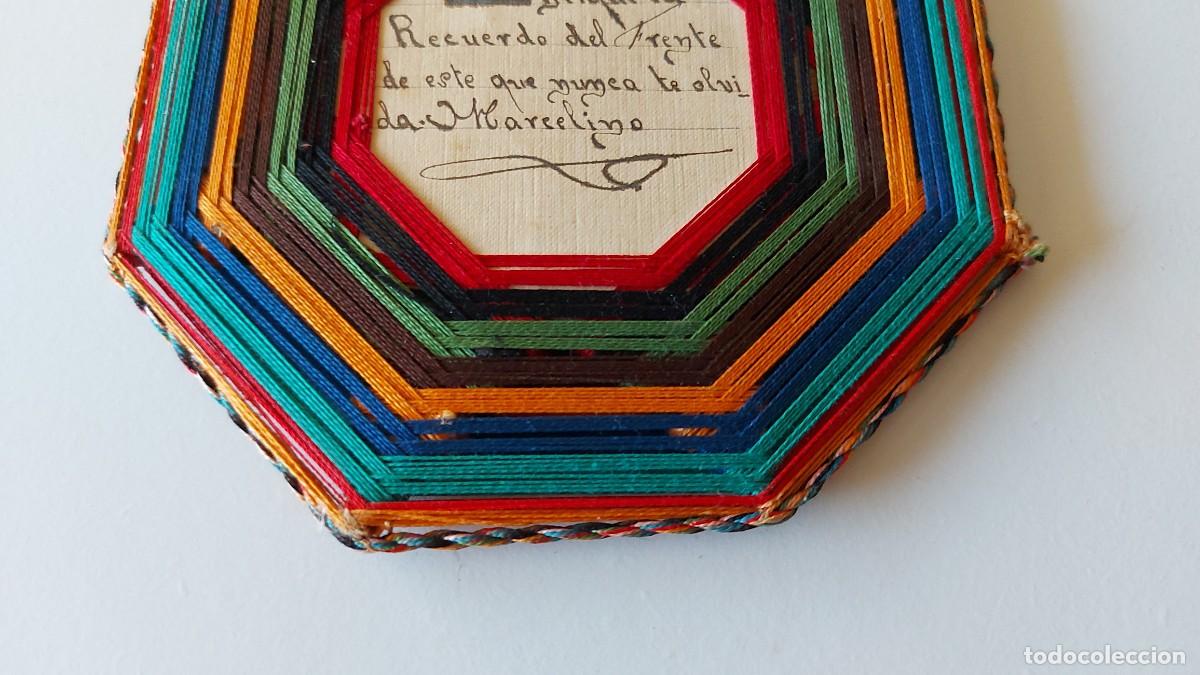 Recuerdo del Frente
de este que nunca te olvi-
da. Marcelino
todocoleccion